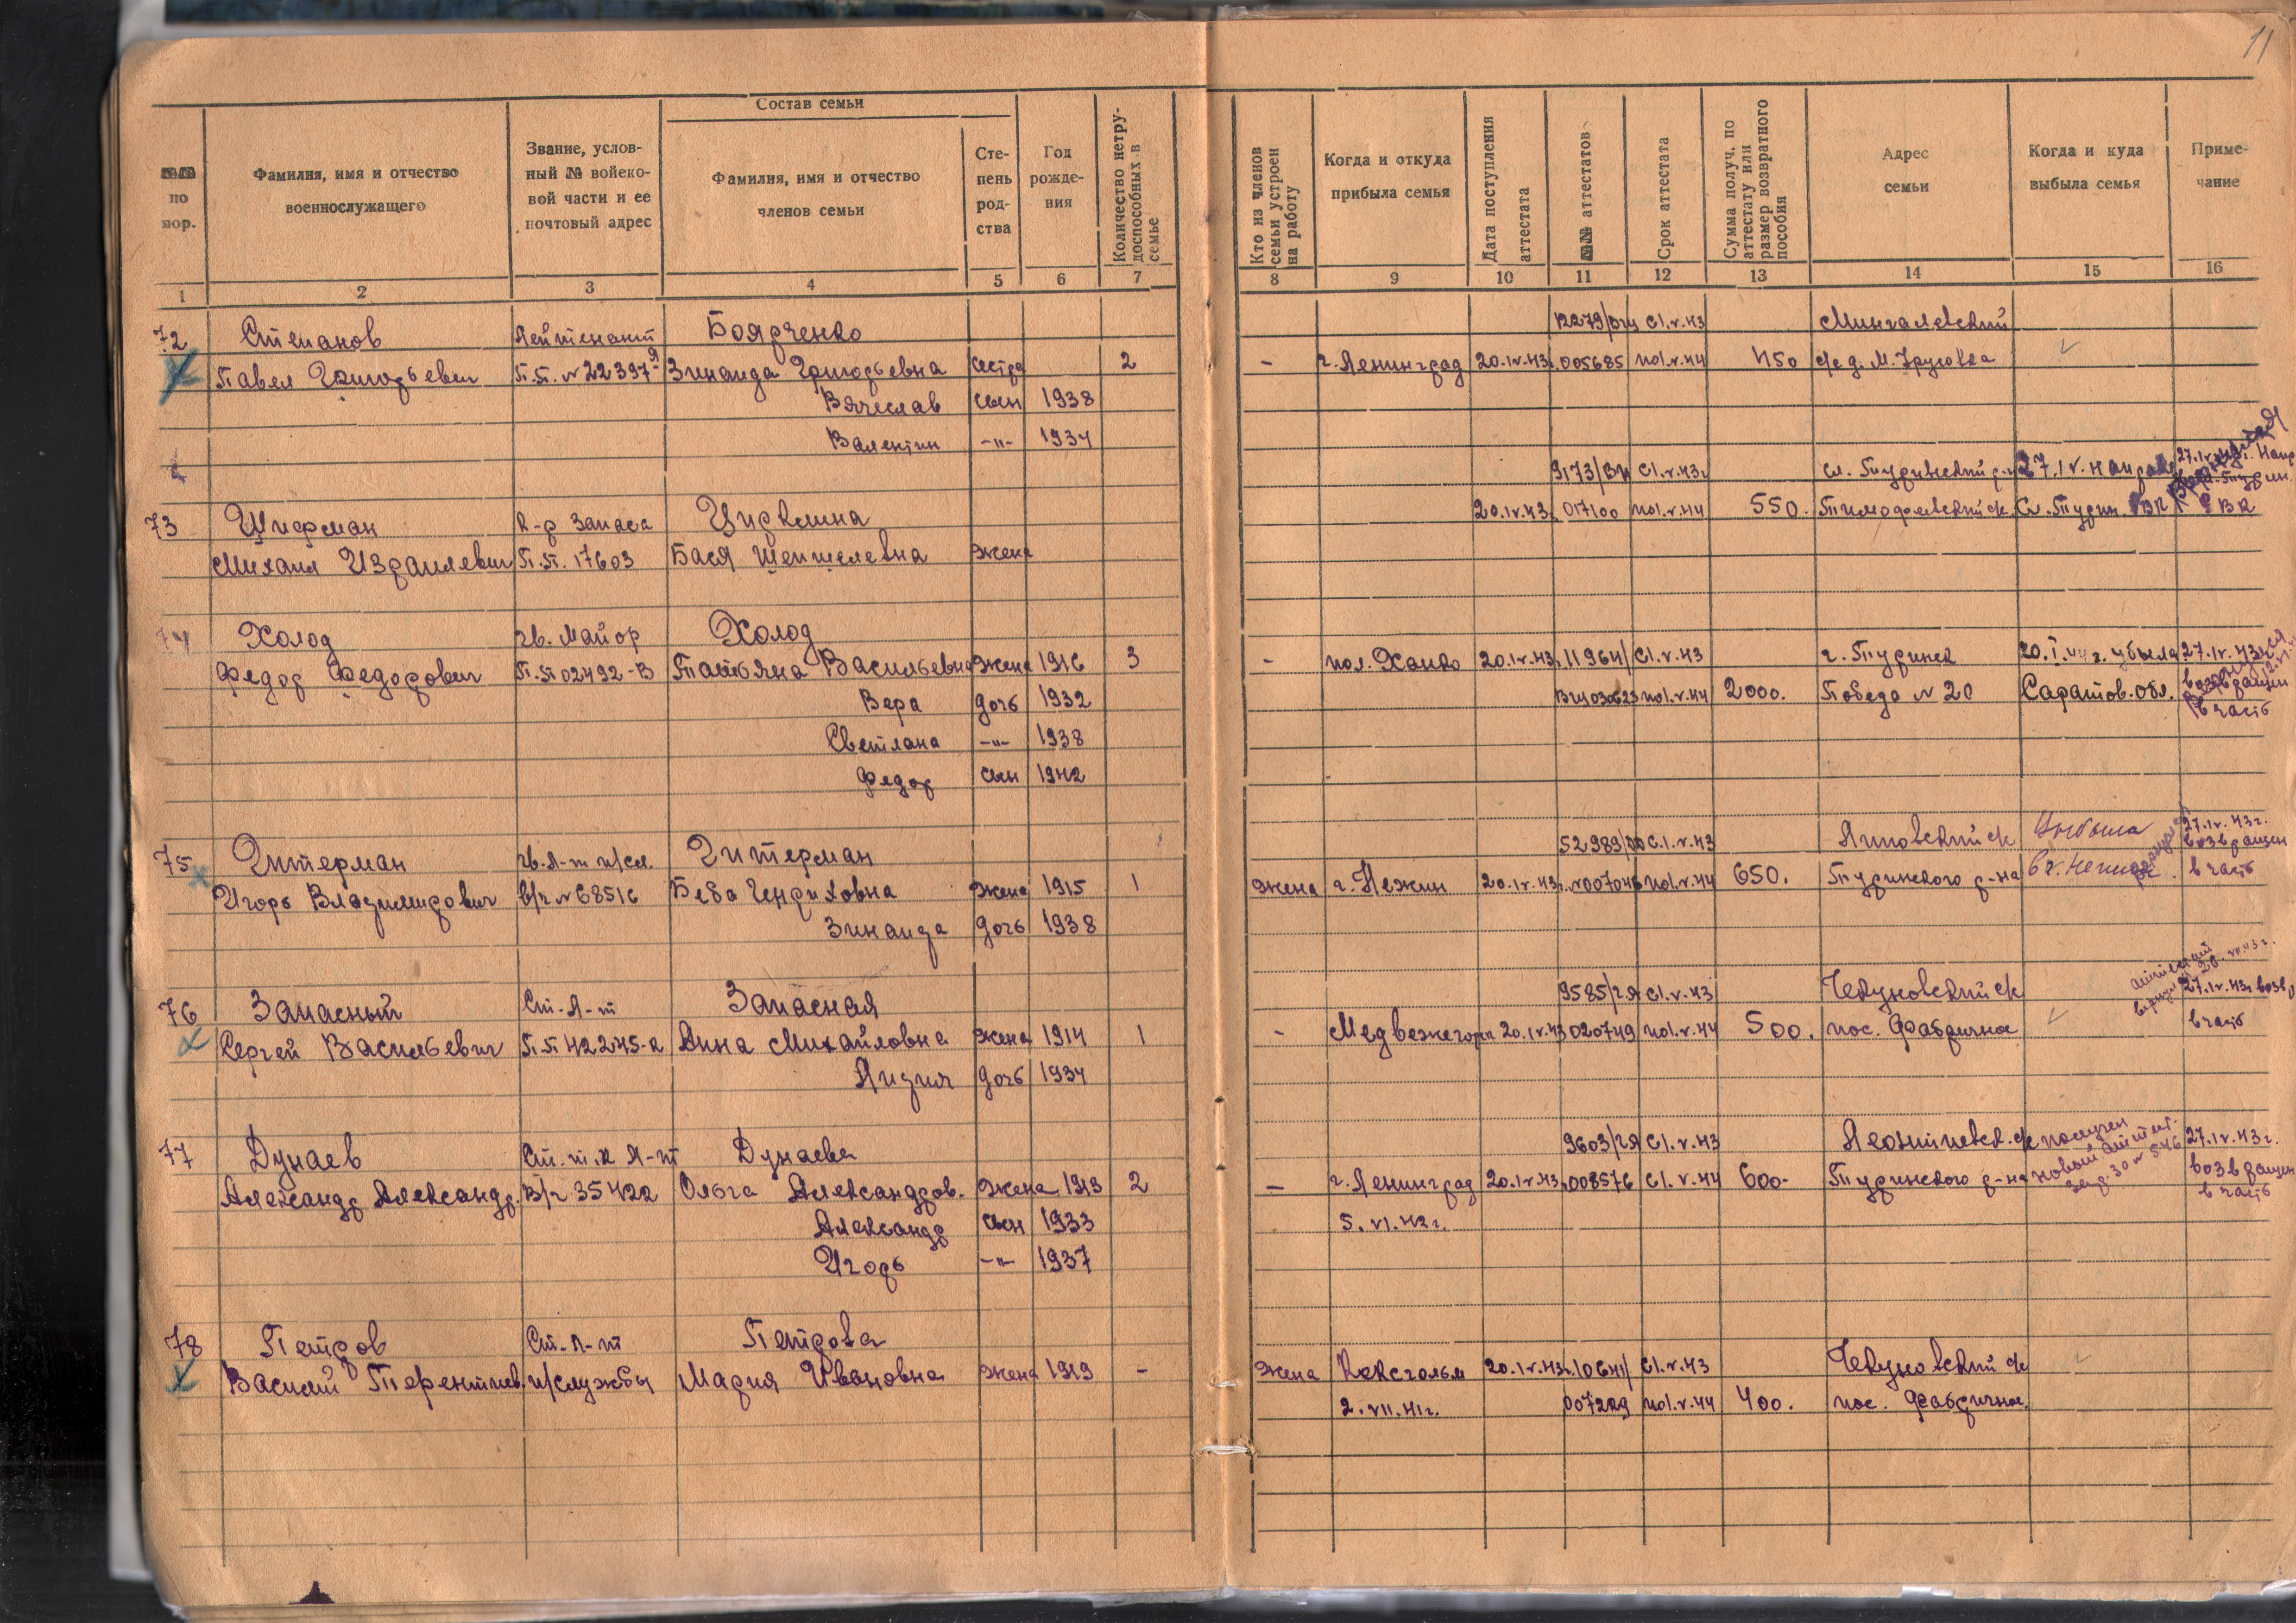 11
Состав семьи
№№ по пор.
Фамилия, имя и отчество военнослужащего
Звание, условный № войсковой части и ее почтовый адрес
Фамилия, имя и отчество членов семьи
Степень родства
Год рождения
Количество нетрудоспособных в семье
Кто из членов семьи устроен на работу
Когда и откуда прибыла семья
Дата поступления аттестата
№№ аттестатов
Срок аттестата
Сумма получ. по аттестату или размер возвратного пособия
Адрес семьи
Когда и куда выбыла семья
Примечание
1 2 3 4 5 6 7 8 9 10 11 12 13 14 15 16
72 Степанов Лейтенант Боярченко 12279/ВЧ С1.V.43 Мингалевский
Павел Григорьевич П.П. № 22397-Я Зинаида Григорьевна сестра 2 - г. Ленинград 20.IV.43г. 005685 по1.V.44 450 с/с д. М. Крутовка
Вячеслав сын 1938
Валентин -"- 1934
9173/ВЧ С1.V.43г Сл. Туринский р-н 27.IV. направл. 27.IV.43г. Напр.
73 Шифман К-р запаса 20.IV.43г. 017100 по1.V.44 550. Тимофеевский ск. Сл. Турин. РВК
Михаил Израилевич П.П. 17603 Бася жена
74 Холод гв. Майор Холод
Федор Федорович П.П 02492-В Татьяна Васильевна жена 1916 3 - пол. Ханко 20.IV.43г. 11964/ С1.V.43 г. Туринск 20.I.44г. убыла 27.IV.43г.
Вера дочь 1932 ВЧ030623 по1.V.44 2000. Победа № 20 Саратов. обл. возвращен
в часть
Светлана -"- 1938
Федор сын 1942
52989/ С.1.V.43 ск Выбыла 27.IV.43г.
75 Гитерман гв. Л-т и/сл. Гитерман возвращен
Игорь Владимирович в/ч № 68516 Беба Генриховна жена 1915 1 жена г. Нежин 20.IV.43г. №007046 по1.V.44 650. Туринского р-на в г. Нежин. в часть
Зинаида дочь 1938
9585/ГЯ С1.V.43 Чекуновский с/к 27.IV.43г. возв.
76 Запасный Ст. Л-т Запасная
Сергей Васильевич П.П 42245-а Анна Михайловна жена 1914 1 - Медвежегорск 20.IV.43 020749 по1.V.44 500. пос. Фабричное в часть
Лидия дочь 1934
77 Дунаев Ст. т.к Л-т Дунаева 9603/ГЯ С1.V.43 Леонтьевск. с/к получен 27.IV.43г.
Александр Александр. В/ч 35422 Ольга Александров. жена 1913 2 - г. Ленинград 20.IV.43г. 008576 С1.V.44 600- Туринского р-на новый аттест. возвращен
в часть
Александр сын 1933 5.VI.42г.
Игорь -"- 1937
78 Петров Ст. Л-т Петрова
Василий Терентиев. и/службы Мария Ивановна жена 1919 - жена Кексгольм 20.IV.43г. 10641/ С1.V.43 Чекуновский с/к
2.VII.41г. 007229 по1.V.44 400. пос. Фабричное.